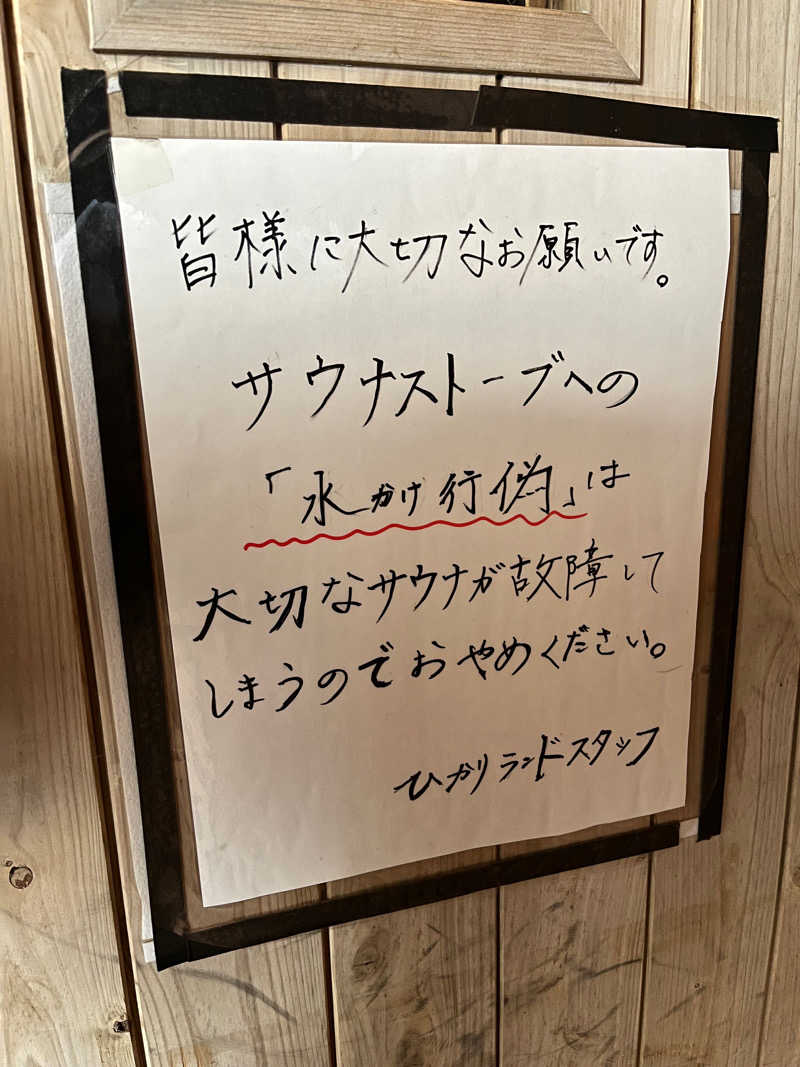 皆様に大切なお願いです。
サウナストーブへの
「水かけ行偽」は
大切なサウナが故障して
しまうのでおやめください。
ひかりランドスタッフ